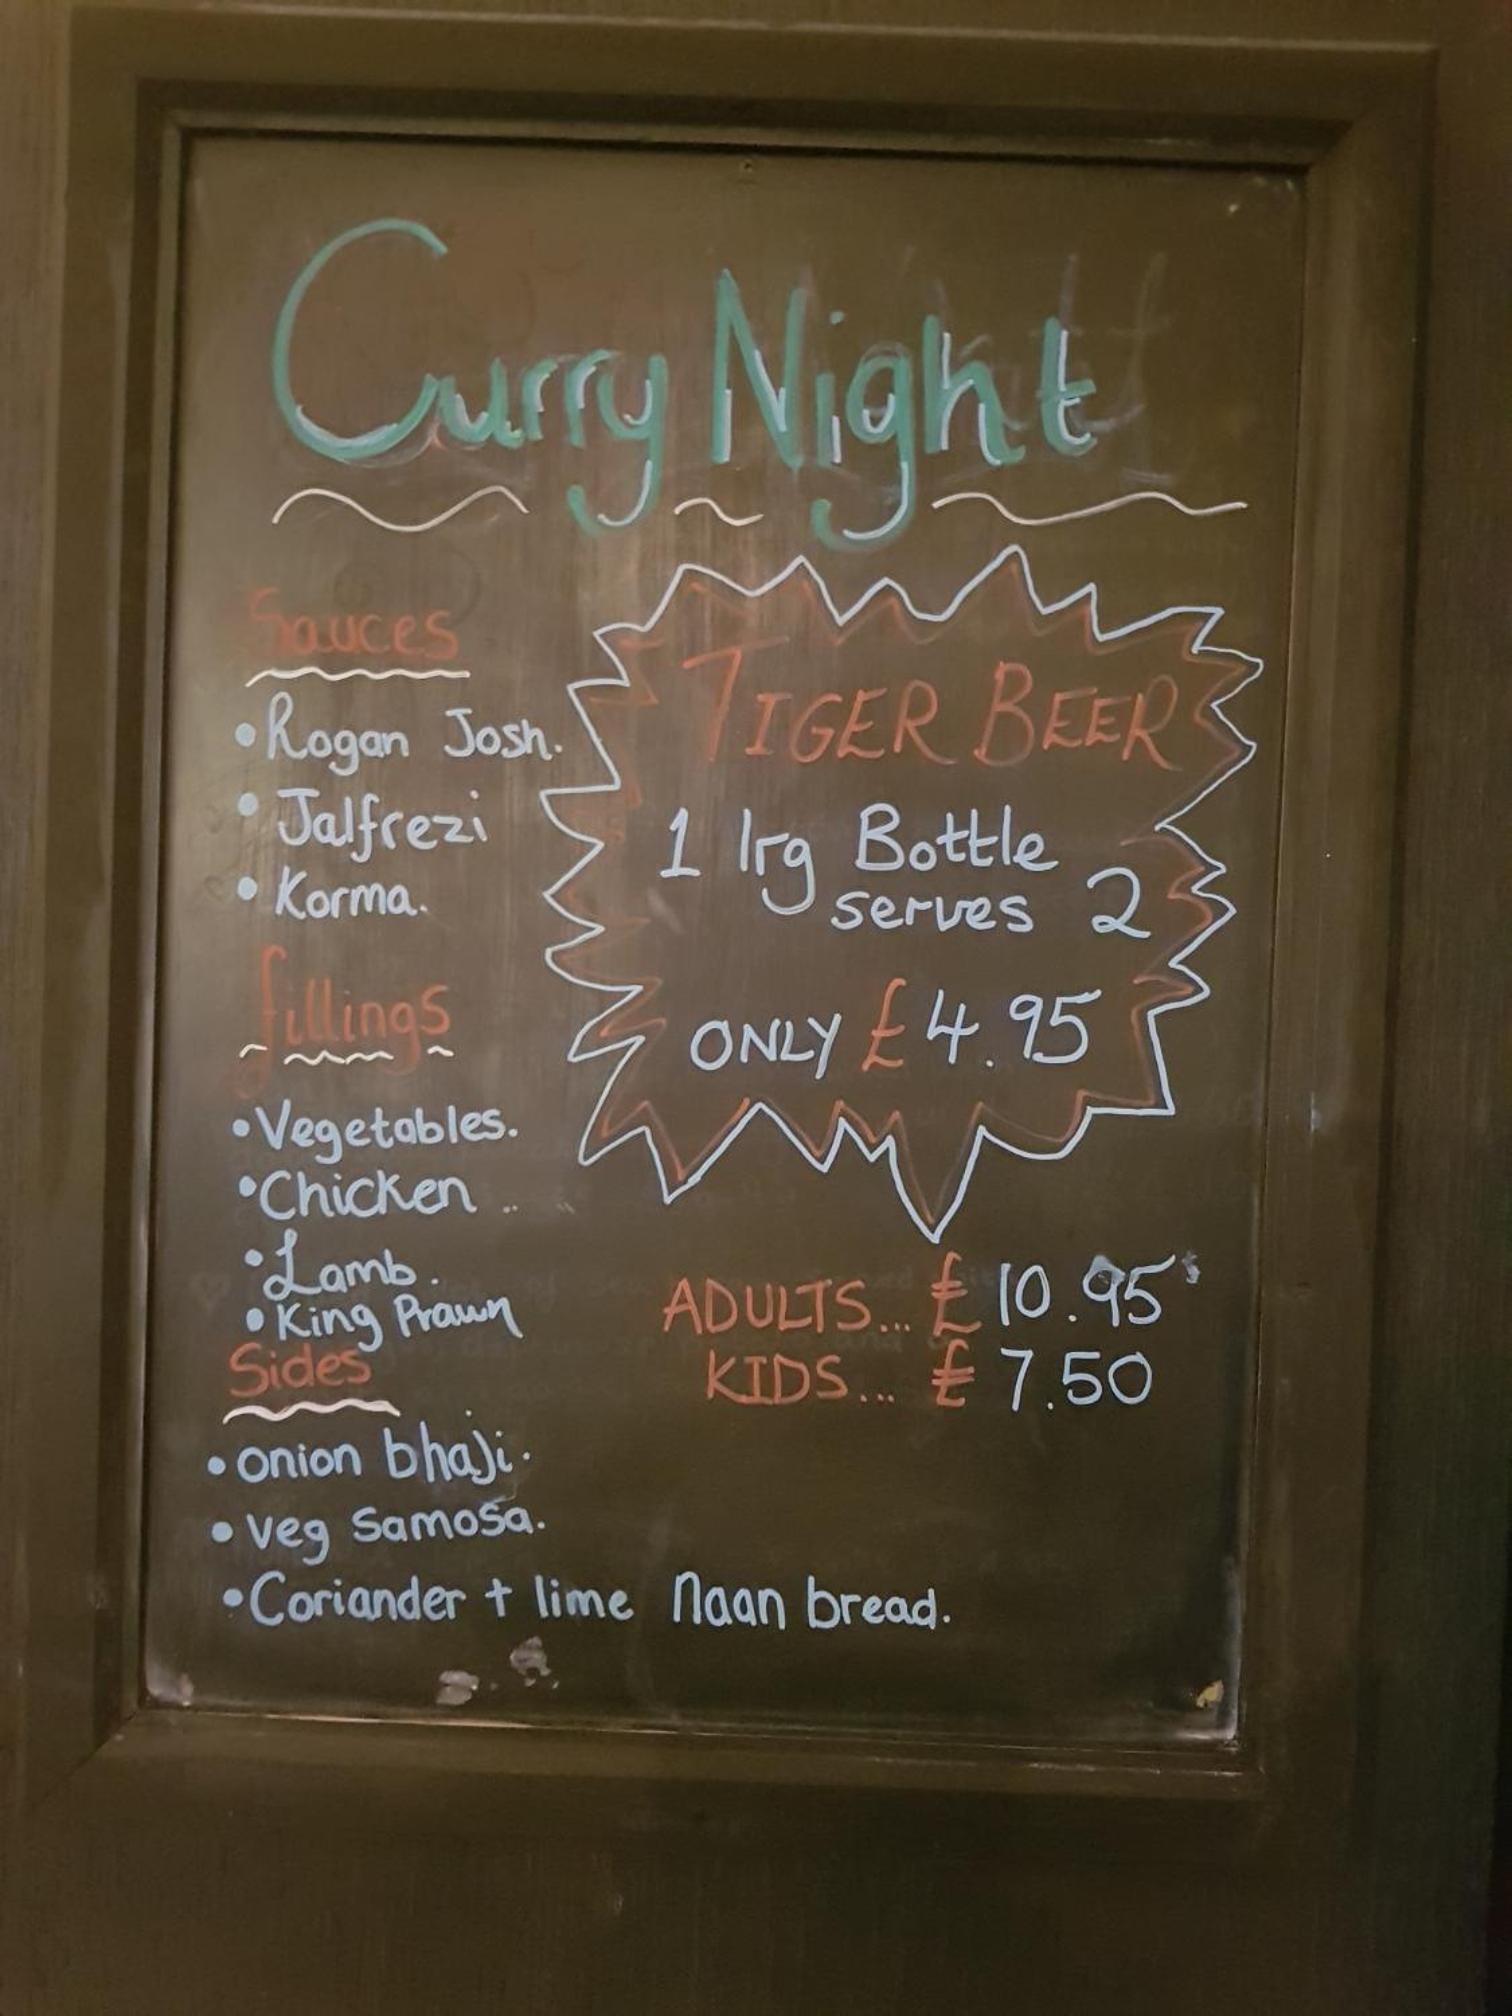 Curry Night
Sauces
• Rogan Josh.
• Jalfrezi
• Korma.
fillings
• Vegetables.
• Chicken ..
• Lamb.
• King Prawn
Sides
• onion bhaji.
• veg samosa.
• Coriander + lime Naan bread.
TIGER BEER
1 lrg Bottle
serves 2
ONLY £4.95
ADULTS... £10.95
KIDS... £7.50